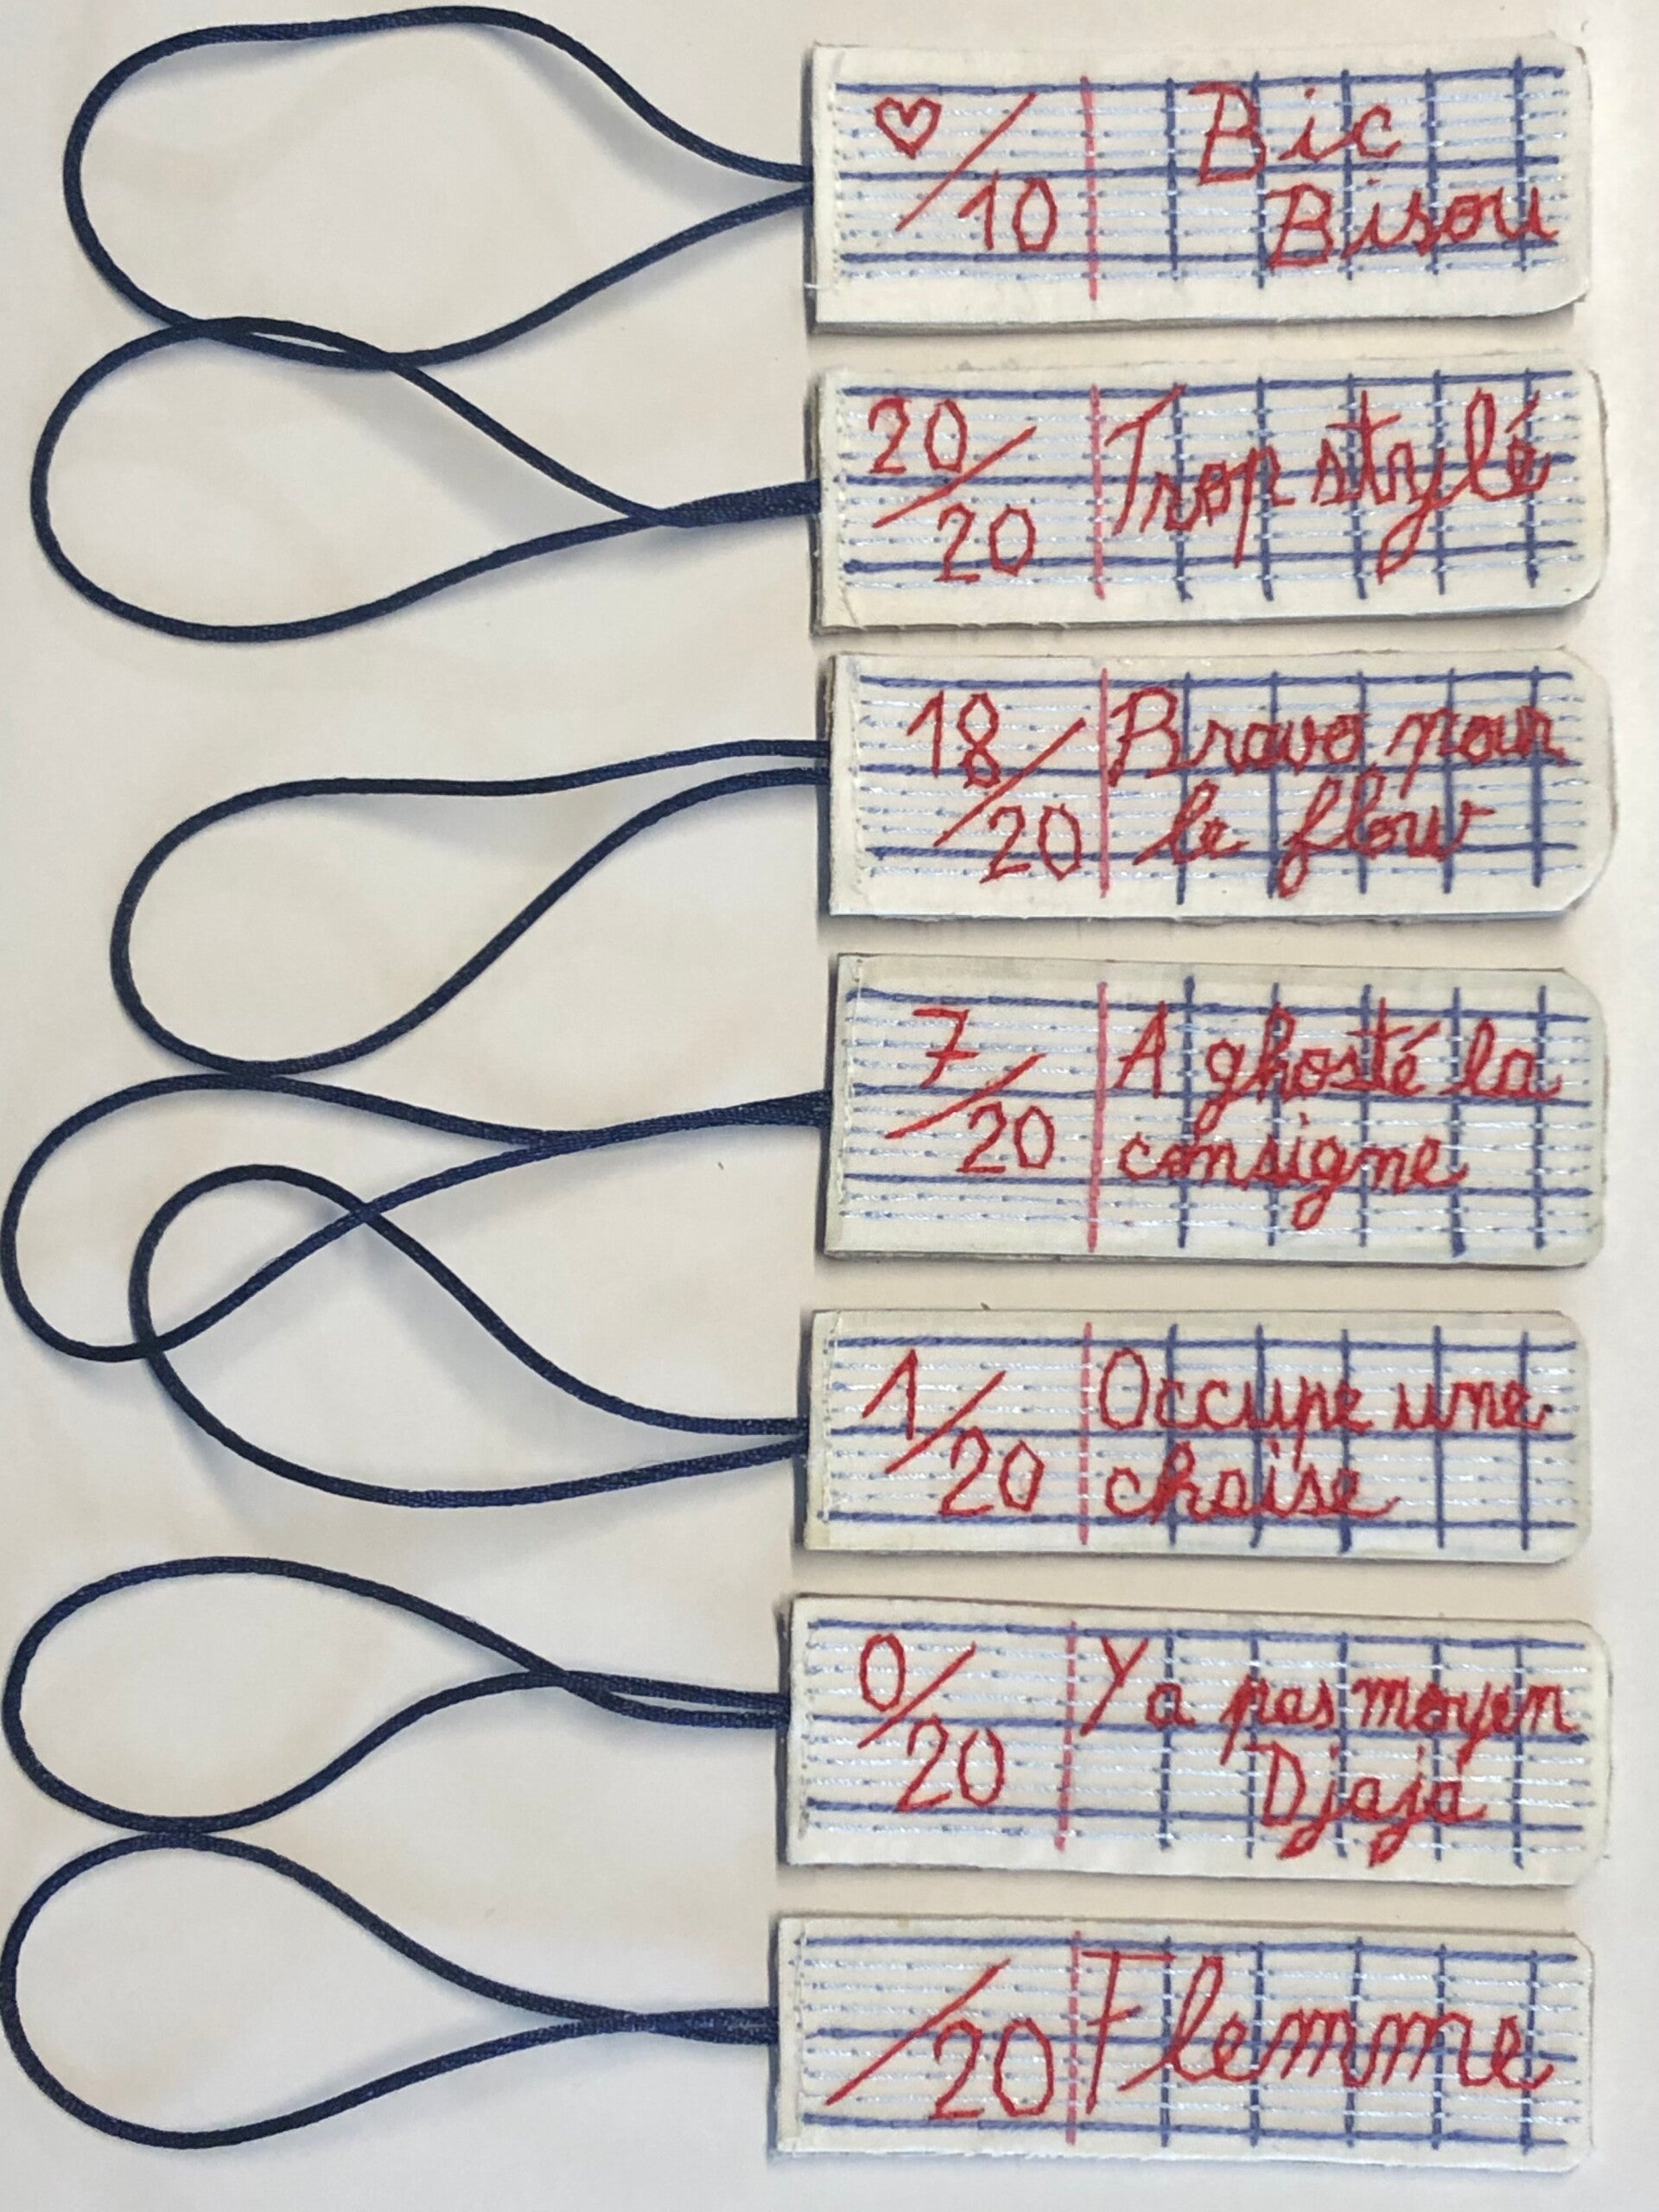 ♡/10 Bic
Bisou
20/20 Trop stylé
18/20 Bravo pour
le flow
7/20 A ghosté la
consigne
1/20 Occupe une
chaise
0/20 Y a pas moyen
Djaja
/20 Flemme